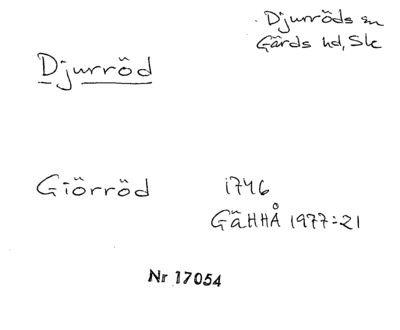 Djurröds sn
Gärds hd, Sk
Djurröd
Giörröd 1746
GäHHÅ 1977:21
Nr 17054